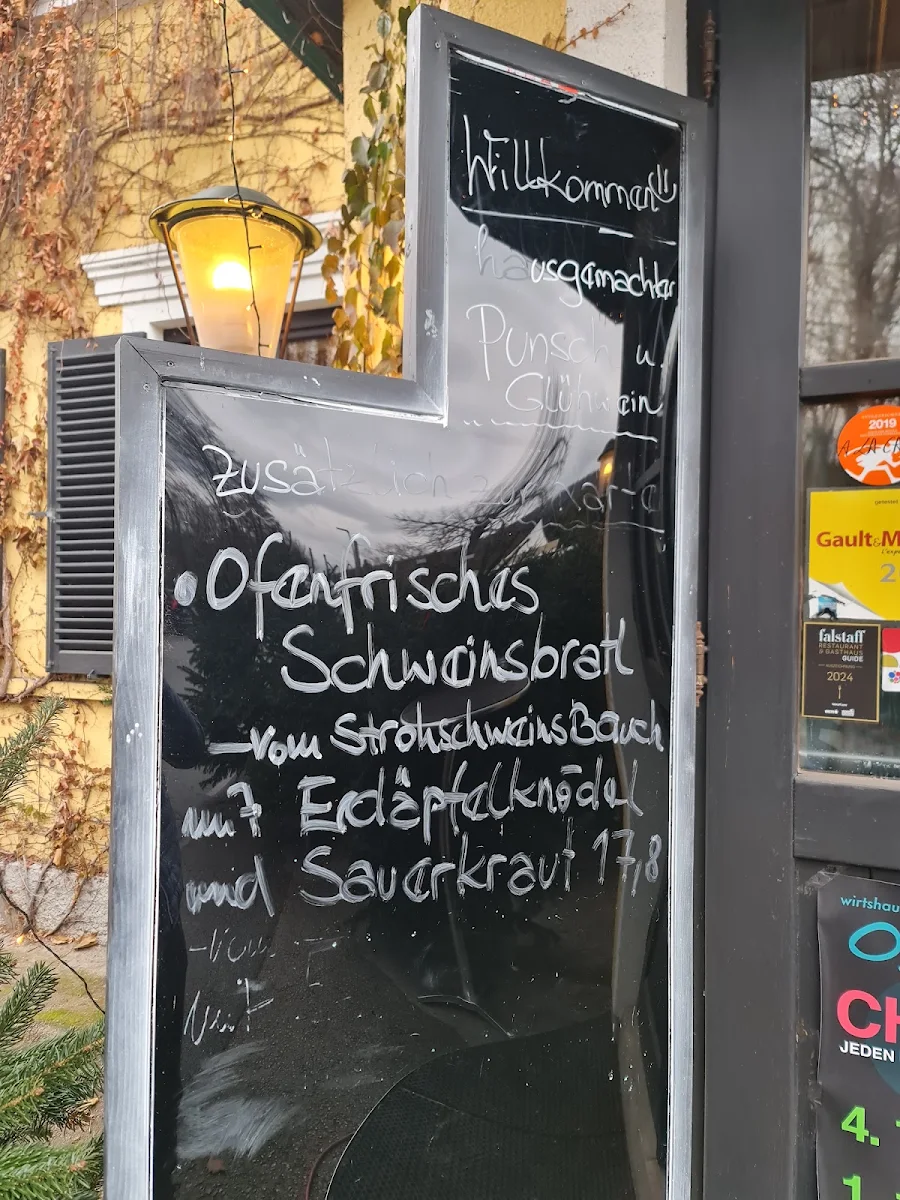 Willkommen!!
hausgemachter
Punsch u.
Glühwein
zusätzlich zur Karte
• Ofenfrisches
Schweinsbratl
- vom StrohschweinsBauch
mit Erdäpfelknödel
und Sauerkraut 17,8
- vom
mit
2019
A LA C
Gault&M
2
falstaff
RESTAURANT
& GASTHAUS
GUIDE
2024
wirtshau
CH
JEDEN
4.
1